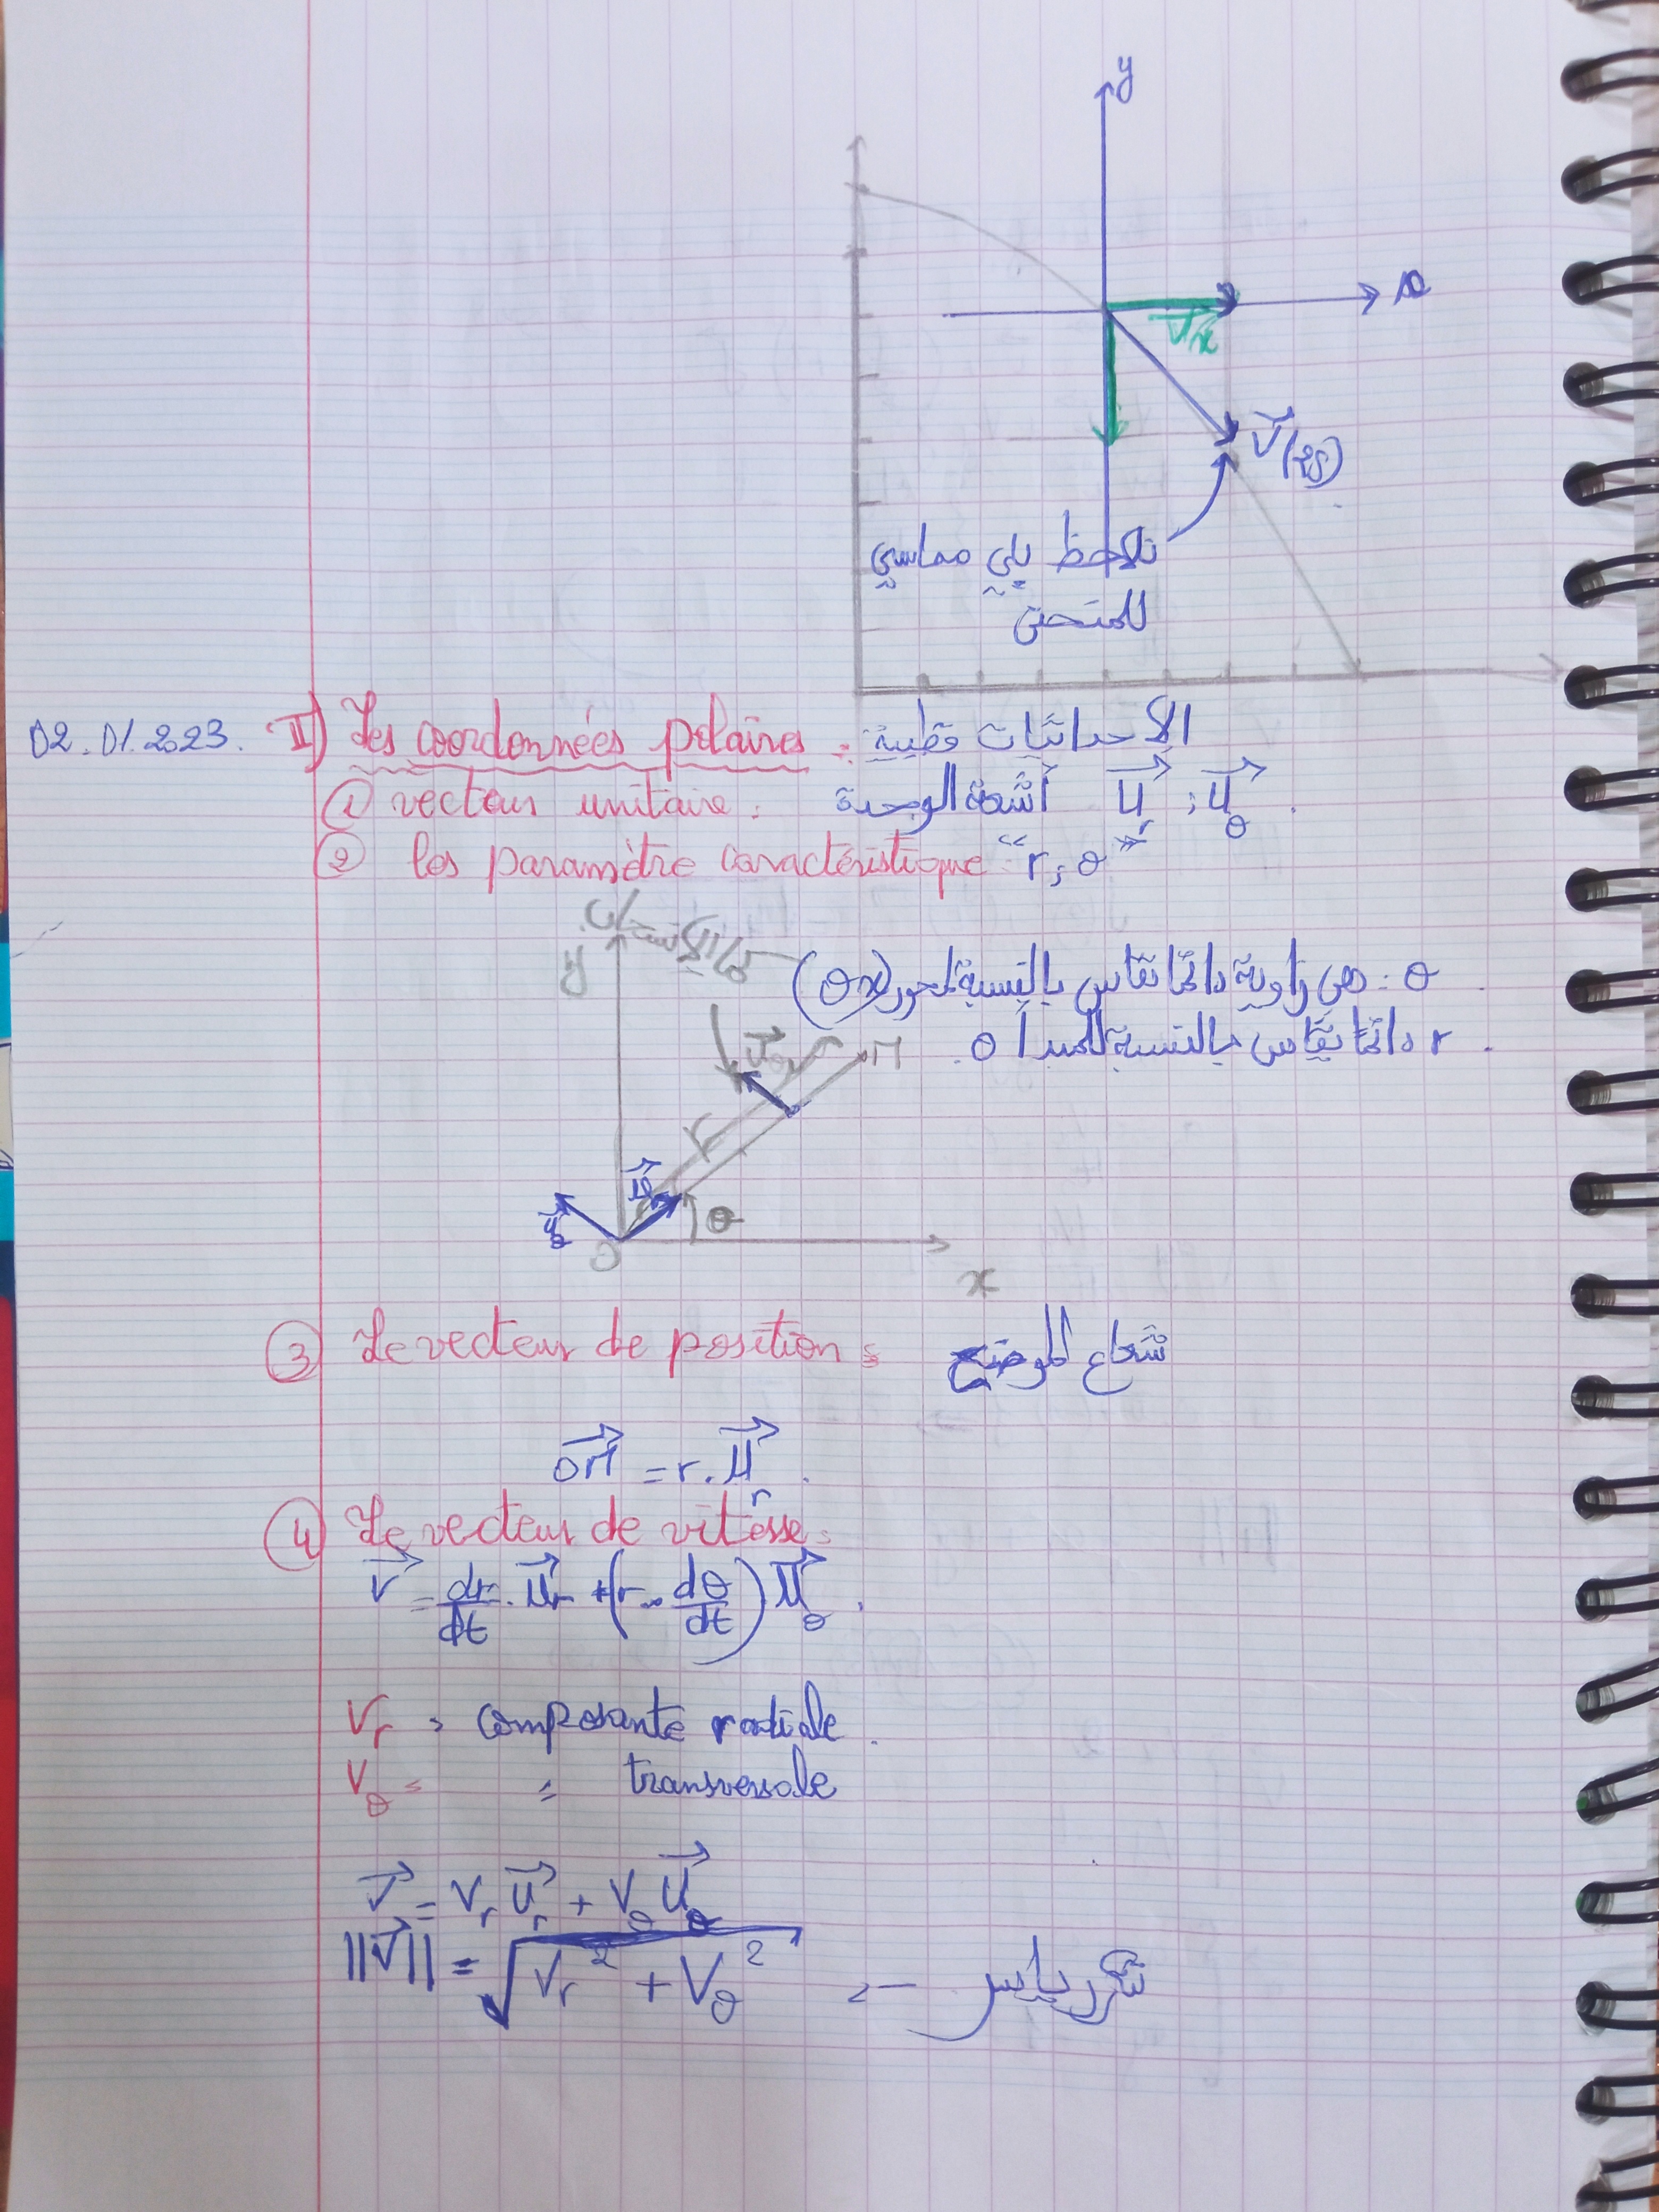 y
x
V⃗x
V⃗(2s)
نلاحظ بلي مماسي
للمنحنى
02.01.2023. II) Les coordonnées polaires : الإحداثيات قطبية
① vecteur unitaire : أشعة الوحدة U⃗r ; U⃗θ .
② les paramètre caractéristique “r; θ”
y
θ : هي زاوية دائما تقاس بالنسبة لمحور (ox)
r دائما تقاس بالنسبة للمبدأ o .
M
r
U⃗θ
U⃗r
U⃗θ
θ
O
x
③ Le vecteur de position : شعاع الموضع
OM⃗ = r . U⃗r .
④ Le vecteur de vitesse :
V⃗ = dr/dt . U⃗r + (r . dθ/dt) U⃗θ .
Vr : composante radiale .
Vθ = = transversale
V⃗ = Vr U⃗r + Vθ U⃗θ
||V⃗|| = √(Vr² + Vθ²)